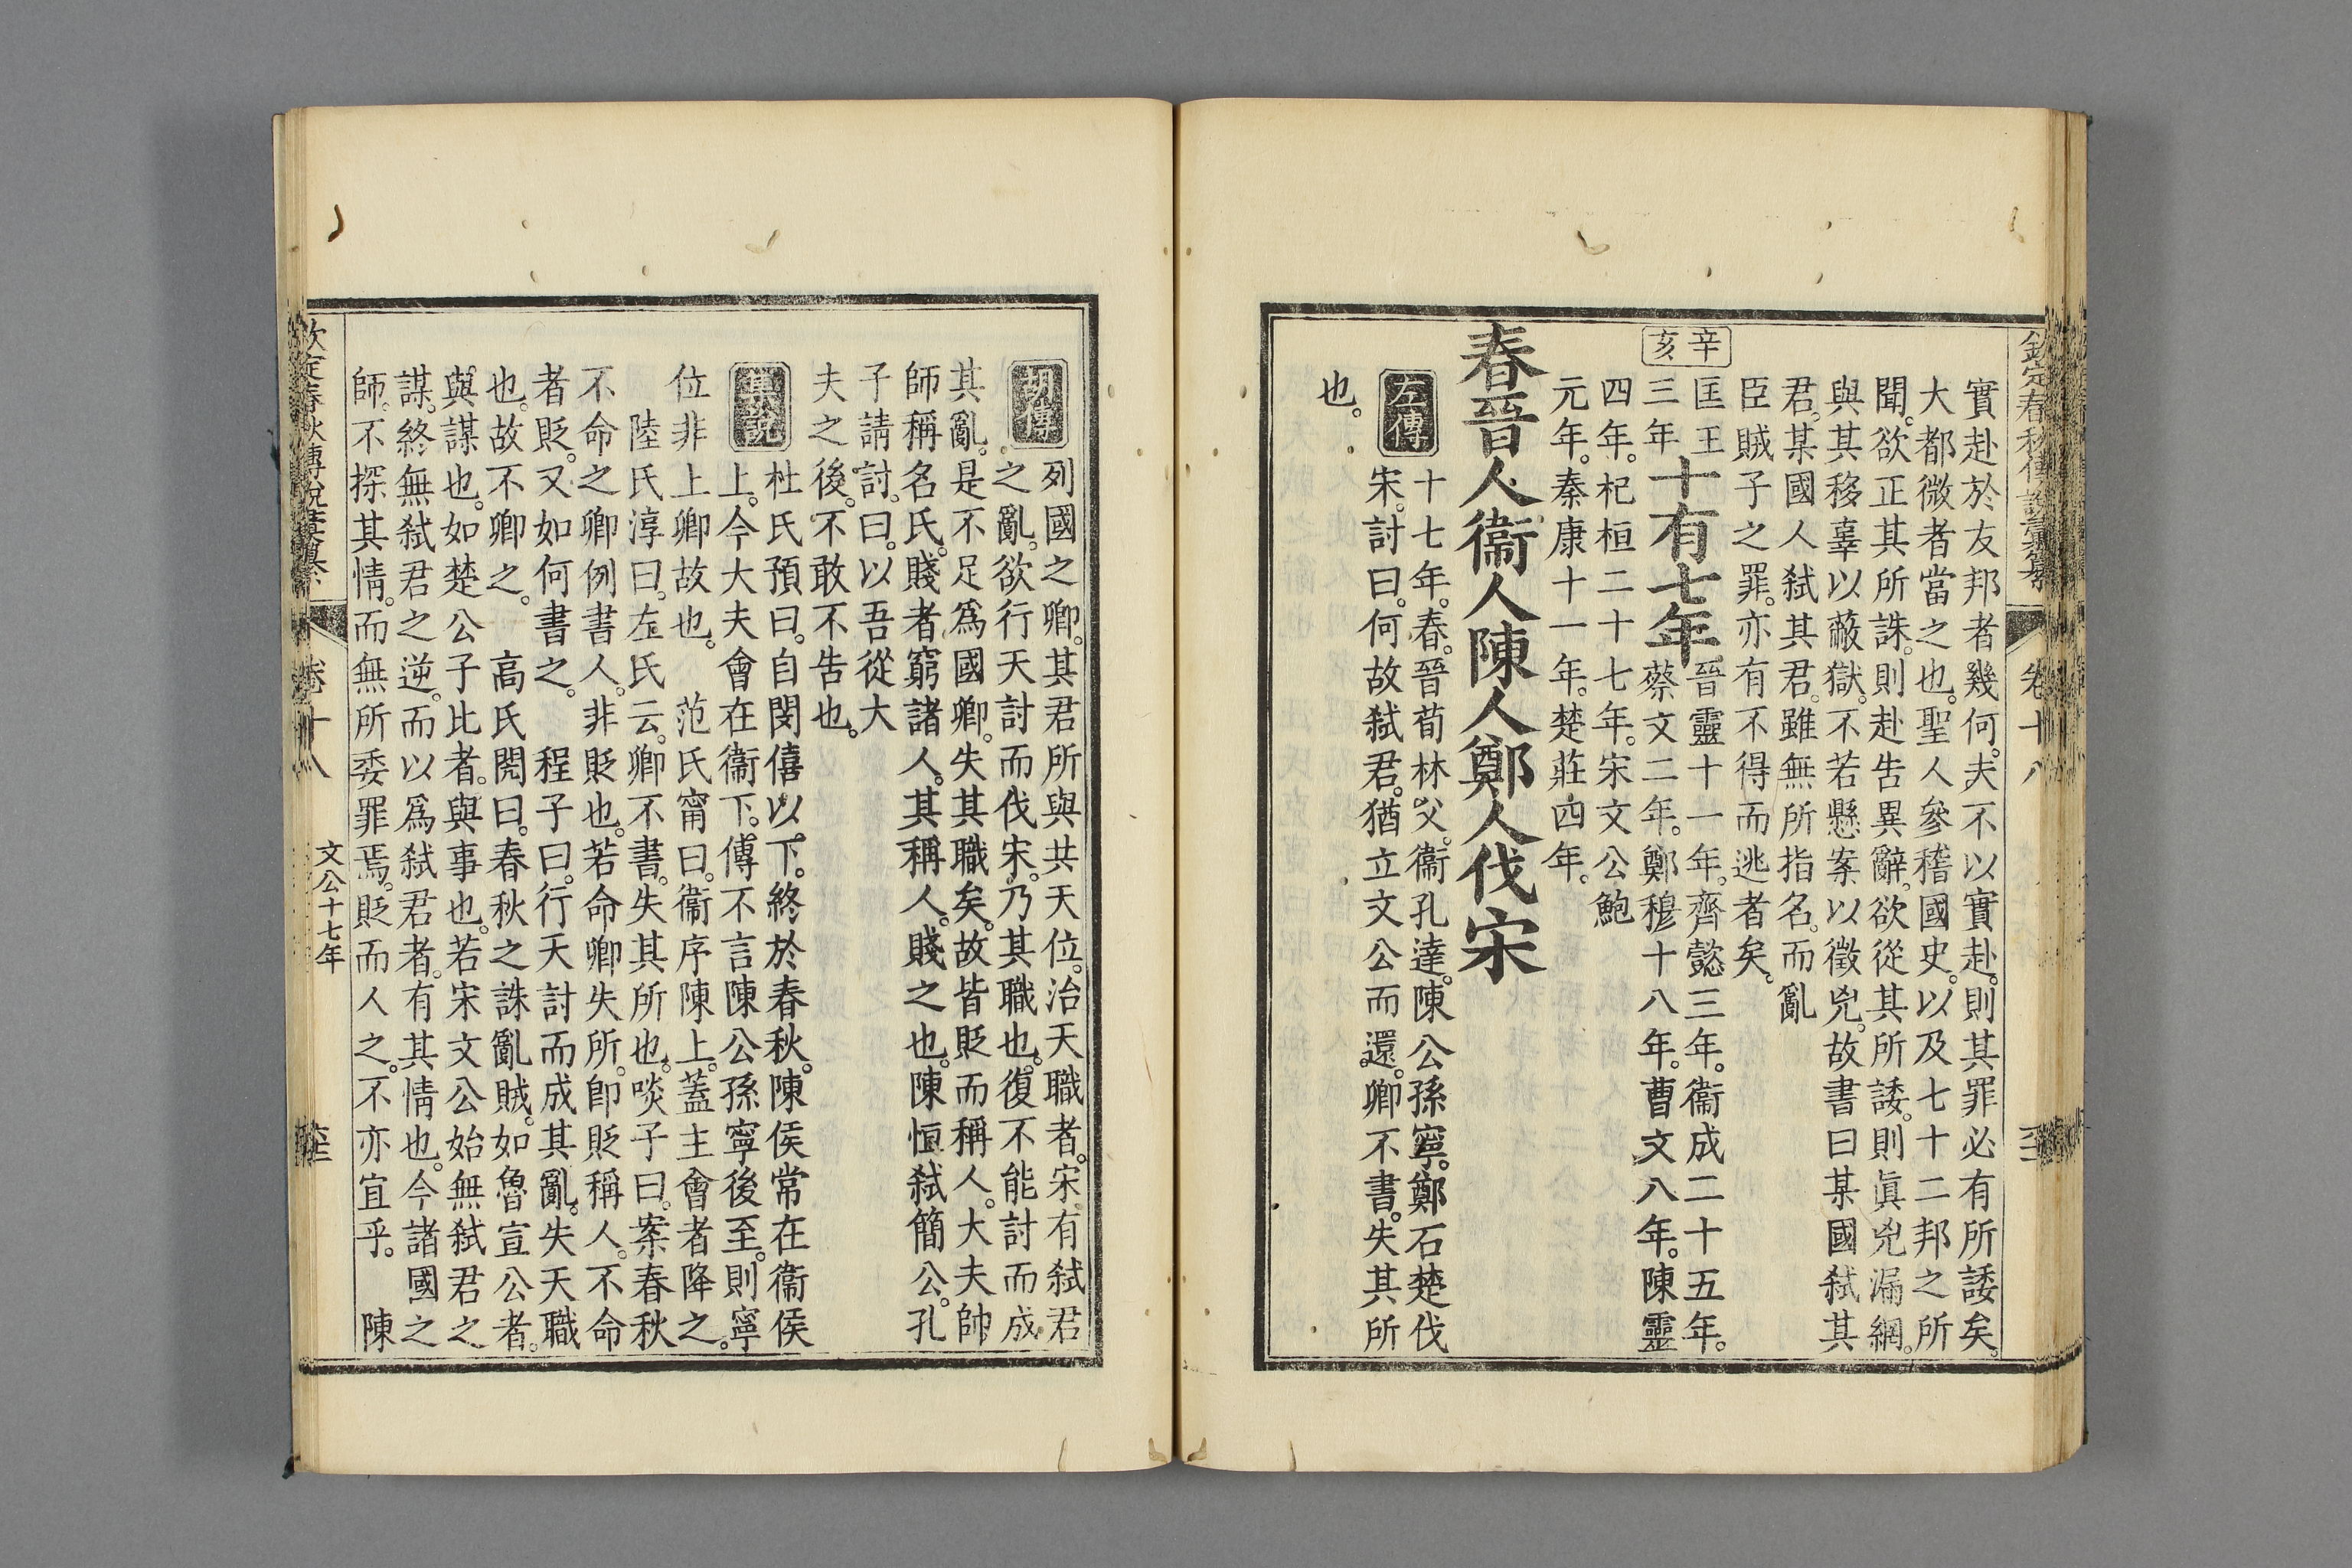 欽定春秋傳說彙纂 卷十八
實赴於友邦者幾何。夫不以實赴。則其罪必有所諉矣。
大都微者當之也。聖人參稽國史。以及七十二邦之所
聞。欲正其所誅。則赴告異辭。欲從其所諉。則眞兇漏網。
與其移辜以蔽獄。不若懸案以徵兇。故書曰某國弑其
君。某國人弑其君。雖無所指名。而亂
臣賊子之罪。亦有不得而逃者矣。
辛亥
匡王三年
十有七年
晉靈十一年。齊懿三年。衞成二十五年。
蔡文二年。鄭穆十八年。曹文八年。陳靈
四年。杞桓二十七年。宋文公鮑
元年。秦康十一年。楚莊四年。
春晉人衞人陳人鄭人伐宋
左傳
十七年。春。晉荀林父。衞孔達。陳公孫寧。鄭石楚伐
宋。討曰。何故弑君。猶立文公而還。卿不書。失其所
也。
胡傳
列國之卿。其君所與共天位。治天職者。宋有弑君
之亂。欲行天討而伐宋。乃其職也。復不能討而成
其亂。是不足爲國卿。失其職矣。故皆貶而稱人。大夫帥
師稱名氏。賤者窮諸人。其稱人。賤之也。陳恒弑簡公。孔
子請討。曰。以吾從大
夫之後。不敢不告也。
集說
杜氏預曰。自閔僖以下。終於春秋。陳侯常在衞侯
上。今大夫會在衞下。傳不言陳公孫寧後至。則寧
位非上卿故也。 范氏甯曰。衞序陳上。蓋主會者降之。
陸氏淳曰。左氏云。卿不書。失其所也。啖子曰。案春秋
不命之卿。例書人。非貶也。若命卿失所。卽貶稱人。不命
者貶。又如何書之。 程子曰。行天討而成其亂。失天職
也。故不卿之。 高氏閌曰。春秋之誅亂賊。如魯宣公者。
與謀也。如楚公子比者。與事也。若宋文公始無弑君之
謀。終無弑君之逆。而以爲弑君者。有其情也。今諸國之
師。不探其情。而無所委罪焉。貶而人之。不亦宜乎。 陳
欽定春秋傳說彙纂 卷十八 文公十七年